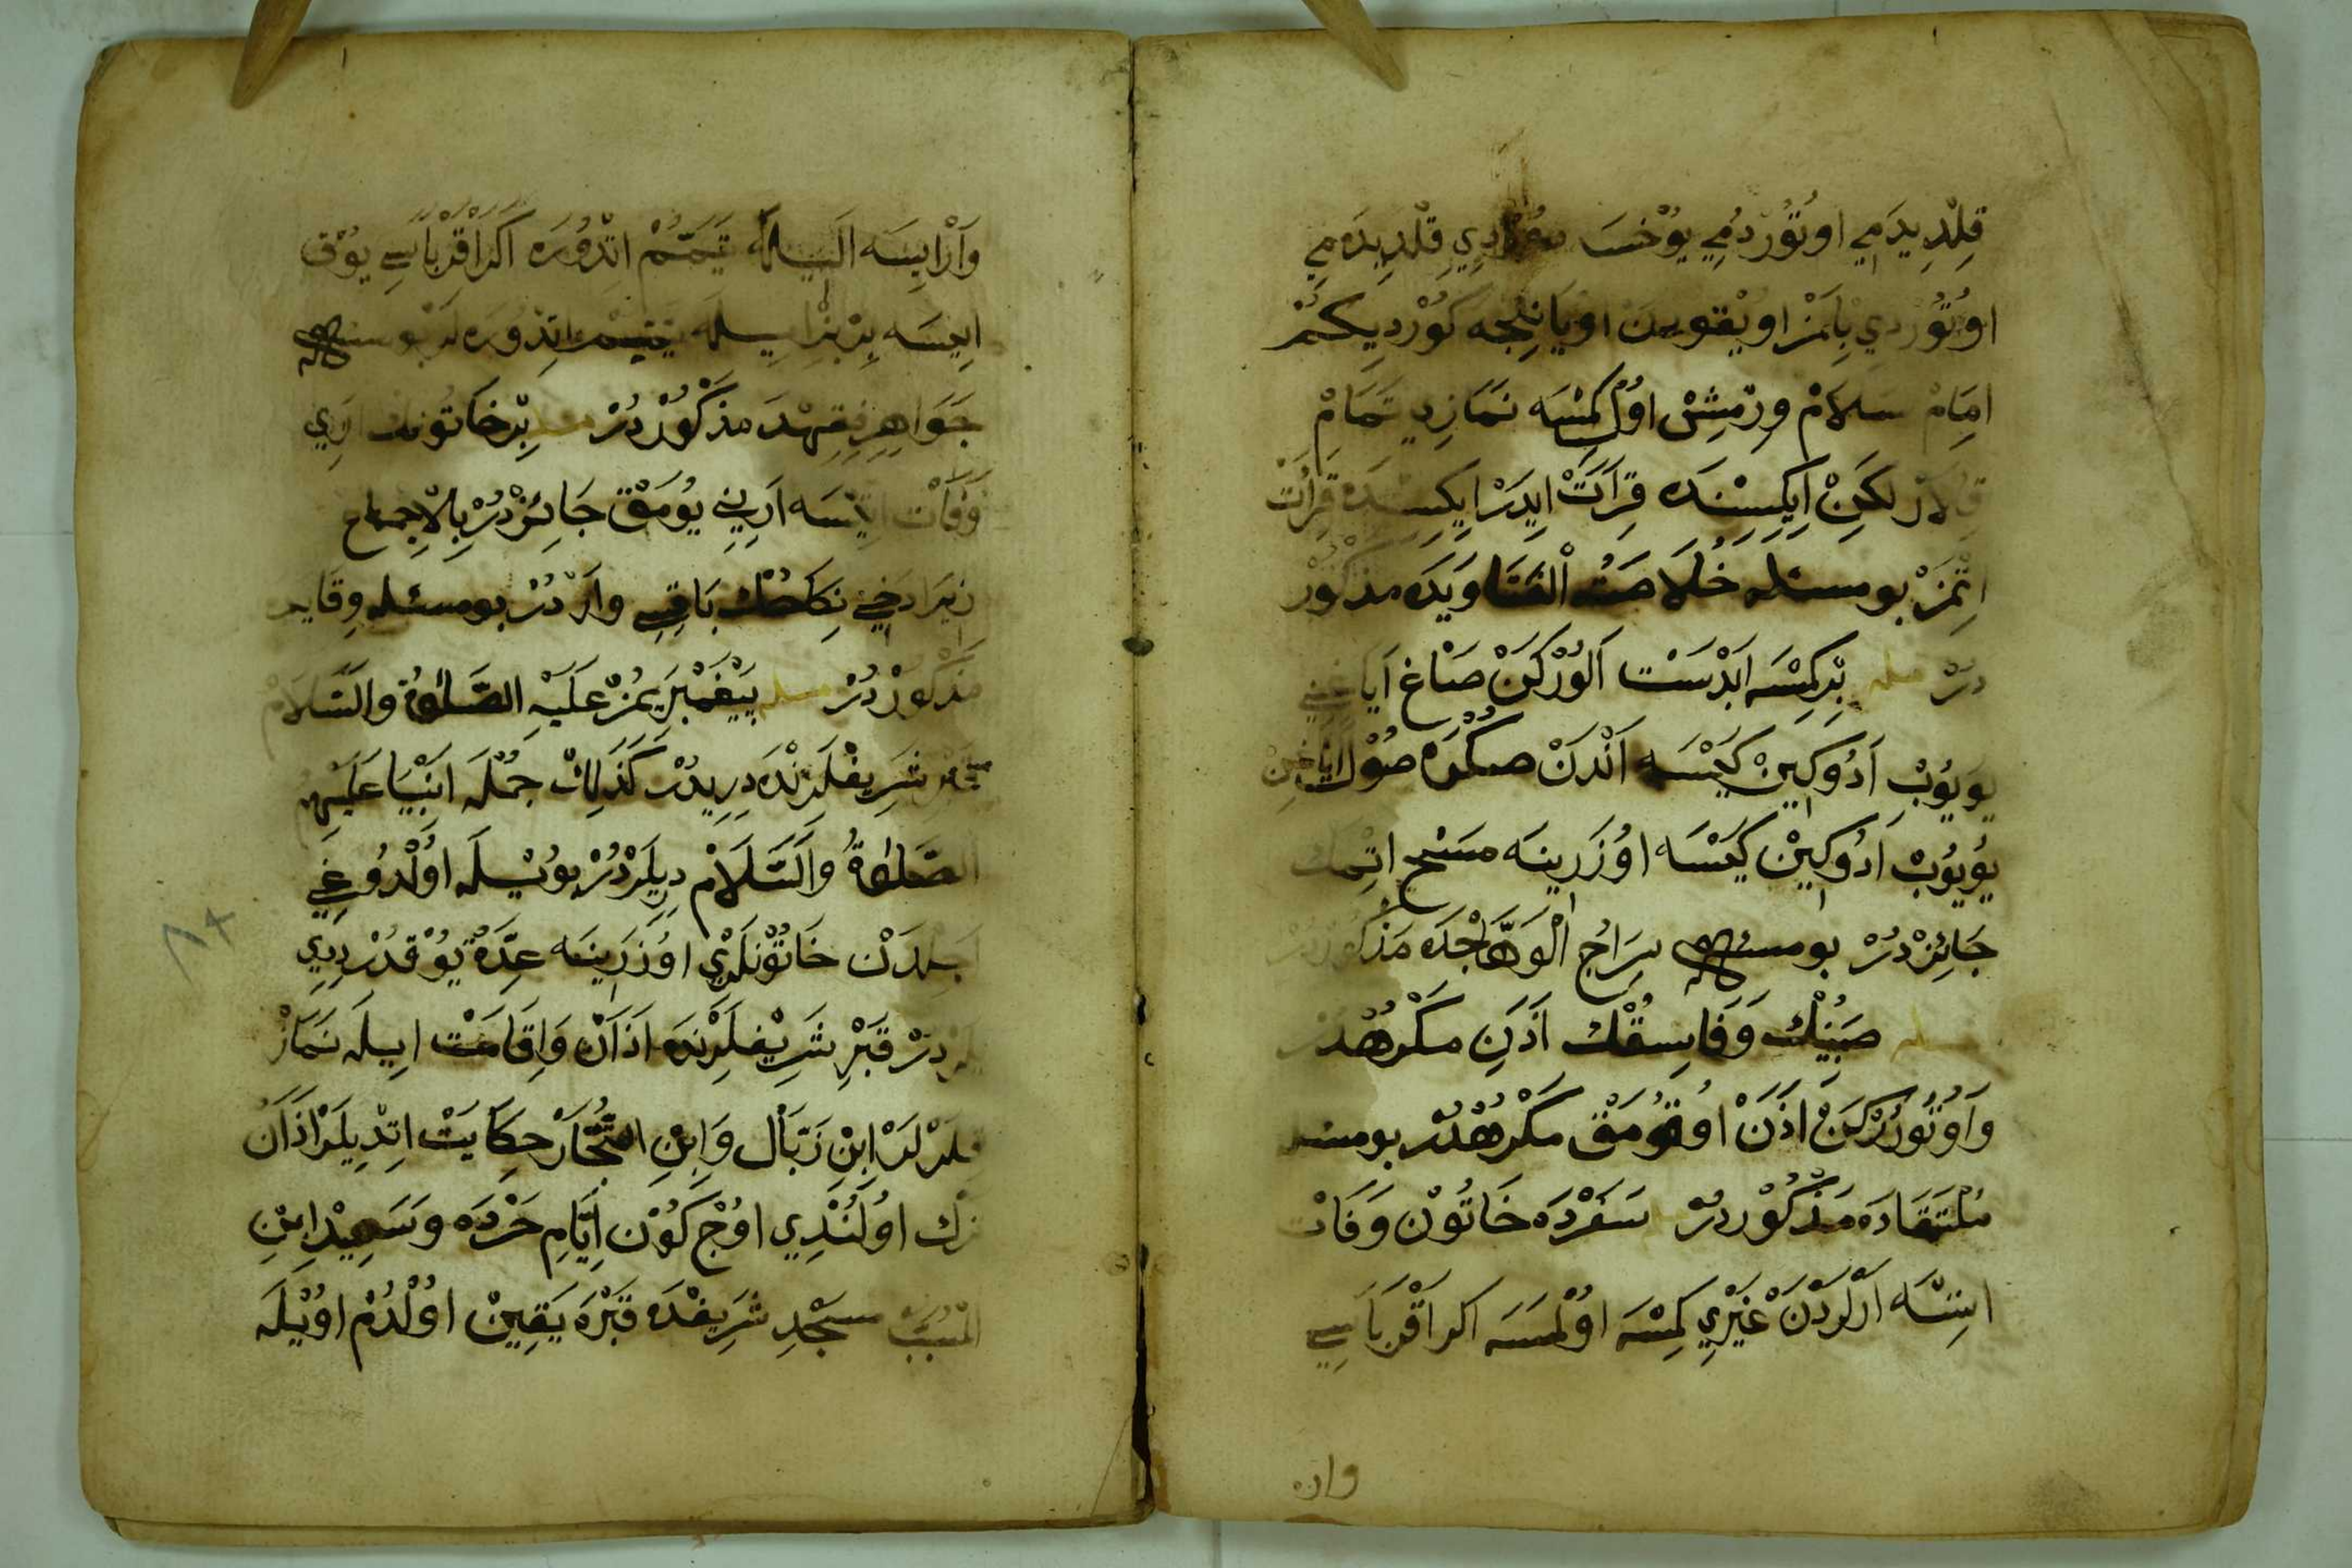 قِلْدِيدَمِي اوُتُوُرْدُمِي يُوخْسَه قِلْدِيدَمِي
اوُتُوُرْدِي بِلْمَزْ اوُيْقُودَنْ اوُيَانِنْجَه كُورْدِيكِمْ
اِمَامْ سَلَامْ وِرْمِشْ اوُلْ كِمْسَه نَمَازِي تَمَامْ
قِلَارْ لٰكِنْ اِيكِيسِنْدَه قِرَأَتْ اِيدَرْ اِيكِيسِنْدَه قِرَأَتْ
اِتْمَزْ بو مسئله خُلَاصَتُ الْفَتَاوِيدَه مذكُورْ
دُرْ مسله بِرْ كِمْسَه اَبْدَسْت اَلُورْكَنْ صَاغْ اَيَاغِينِي
يُويُوبْ اَدُوكِينْ كَيْسَه اَنْدَنْ صكْرَه صُولْ اَيَاغِينْ
يُويُوبْ اَدُوكِينْ كَيْسَه اوُزَرِينَه مَسْحِ اتِمك
جَائِزْدُرْ بو مسئله سِرَاجُ الْوَهَّاجْدَه مَذْكُورْدُرْ
مسله صَبِينُكْ وَفَاسِقُكْ اَذَانِ مكْرُهْدُرْ
وَاوُتُورُرْكَنْ اَذَنْ اوُقُومَقْ مَكْرُهْدُرْ بو مسله
مُلْتَقَادَه مَذْكُورْدُرْ سَفَرْدَه خَاتُونْ وَفَاتْ
اِتسَه اَرْلَرْدَنْ غَيْرِي كِمْسَه اوُلْمَسَه اكر اَقْرَبَاسِي
واره
وَارَايسَه اَلِيلَه تَيَمُّمْ اِتْدُورَه اَكَرْ اَقْرَبَاسِي يُوقْ
اِيسَه بِرْ بَزْ اِيلَه تَيَمُّم اِتْدُورَه لَرْ بو مسئله
جَوَاهِرِ فِقِهْدَه مَذْكُورْدُرْ مسله بِرْ خَاتُونك اَرِي
وَفَاتْ اِتسَه اَرِينِي يُومَقْ جَائِزْدُرْ بِالْاِجْمَاع
زِيرَا دَخِي نِكَاحُكْ بَاقِيسِي وَارْدُرْ بو مسئله وِقَايه
مَذْكُورْدُرْ مسله پَيْغَمْبَرِيمُزْ عَلَيْهِ الصَّلٰوةُ وَالسَّلَامْ
قَبْرِ شَرِيفْلَرِنْدَه دِرِيدُرْ كَذٰلِكْ جُمْلَه اَنْبِيَا عَلَيْهِمُ
الصَّلٰوةُ وَالسَّلَامْ دِيرِيلَرْدُرْ بُويْلَه اوُلْدُوغِي
اَجِلْدَنْ خَاتُونْلَرِي اوُزَرِينَه عِدَّةْ يُوقْدُرْ دِيدِي
لَرْدِرْ قَبْرِ شَرِيفْلَرِنْدَه اَذَانْ وَاِقَامَتْ اِيلَه نَمَازْ
قِلَرْلَرْ اِبْنِ زَبَالْ وَاِبْنِ النُّجَّارْ حِكَايَتْ اِتْدِيلَرْ اَذَانْ
تَرْك اوُلُنْدِي اوُچْ كُونْ اَيَّامِ حَرَّه دَه وَسَعِيدْ اِبْنِ
الْمُسَيَّبْ مَسْجِدِ شَرِيفْدَه قَبْرَه يَقِينْ اوُلْدُمْ اوُيْلَه